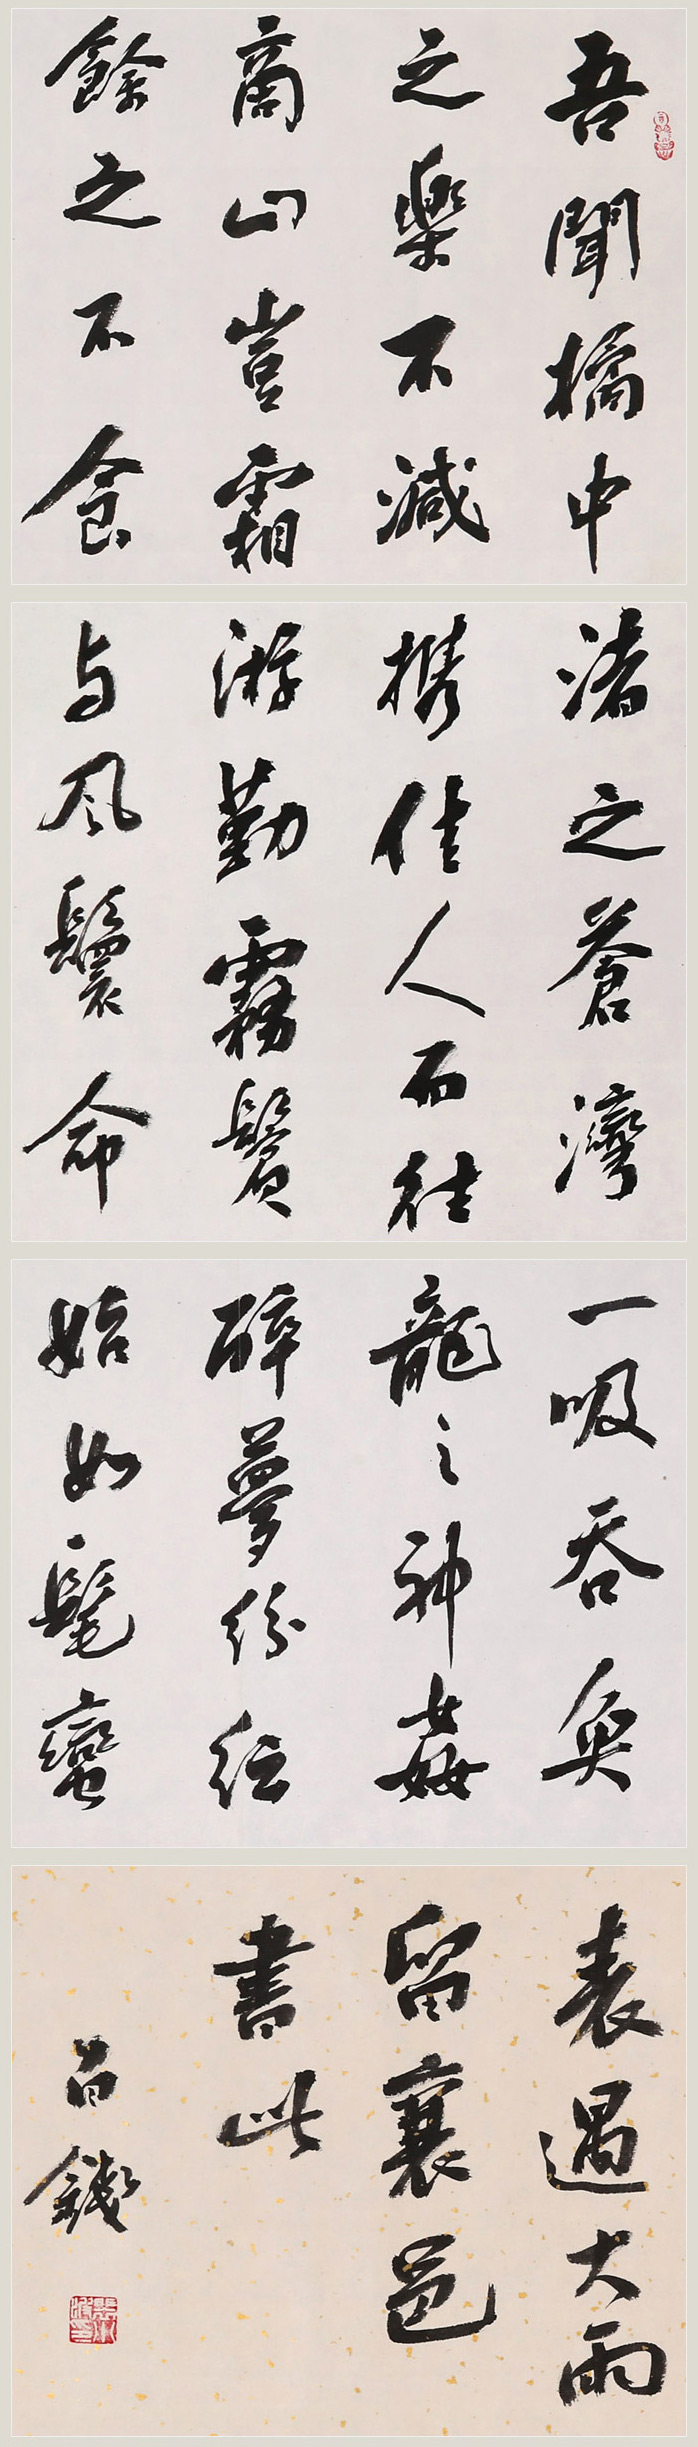 吾聞橘中
之樂不減
商山豈霜
餘之不食
渚之蒼灣
携佳人而往
游勤霧鬢
与風鬟命
一吸吞魚
龍之神姦
醉夢紛紜
始如髦蠻
表遇大雨
留襄邑
書此